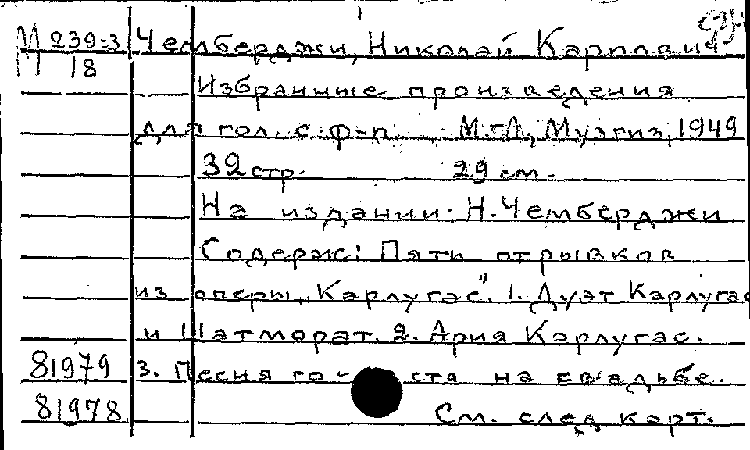 М 239-3 Чемберджи, Николай Карпович
18
Избранные произведения
для гол. с ф-п. М.-Л., Музгиз, 1949
32 стр. 29 см.
На издании: Н. Чемберджи
Содерж: Пять отрывков
из оперы „Карлугас". 1. Дуэт Карлугас
и Шатморат. 2. Ария Карлугас.
81979 3. Песня го ста на свадьбе.
81978 См. след карт.